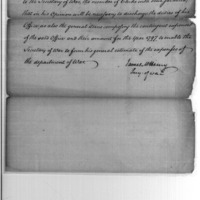 to the Secretary of War, the number of Clerks
that in his Opinion will be necessary to discharge the duties of his
Office, as also the general
of the said Office and this amount for the year 1797 to enable the
Secretary of War to form his general estimate of the expenses of
the department of War.
James McHenry
Secy. of war